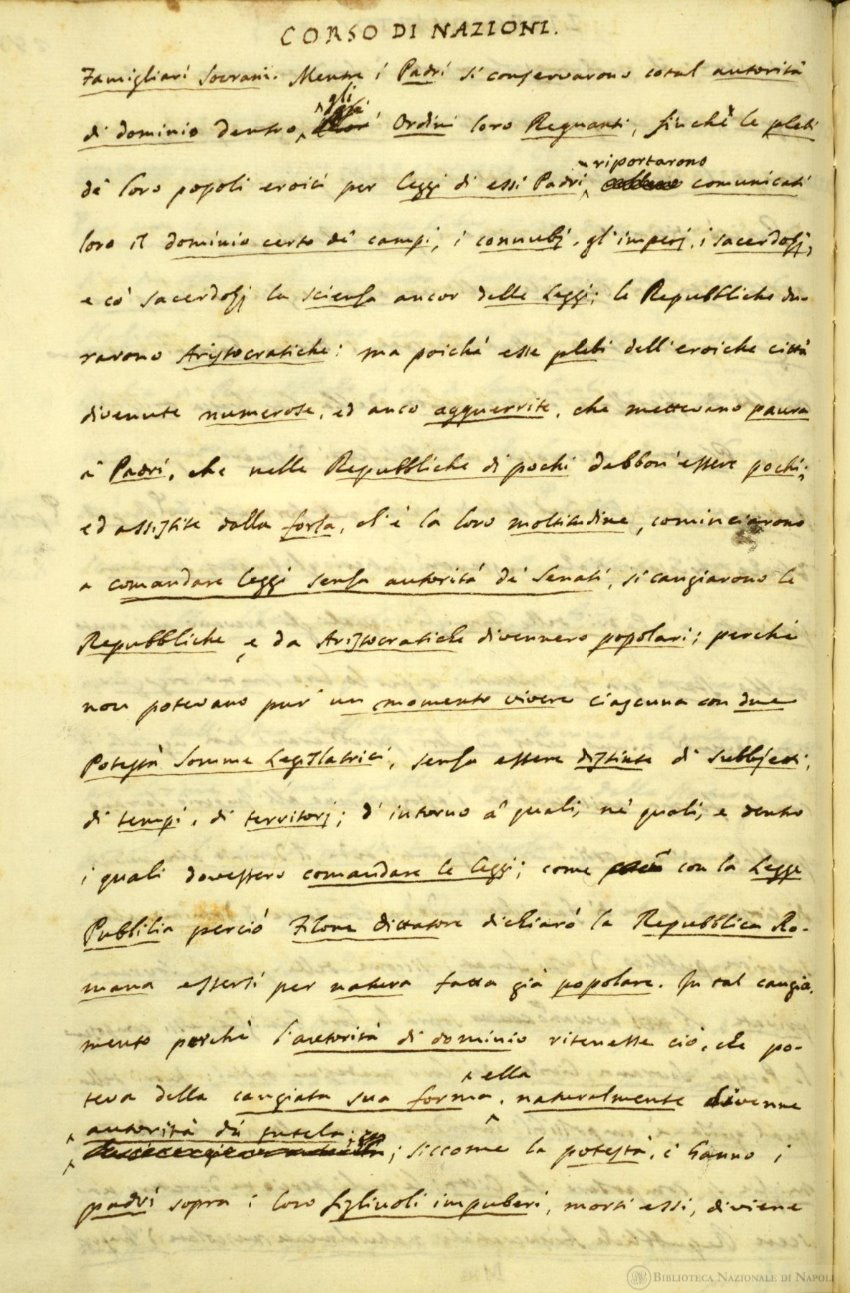 CORSO DI NAZIONI.
Famigliari Sovrani. Mentre i Padri si conservarono cotal autorità
gli
di dominio dentro Ordini loro Regnanti, finchè le plebi
riportarono
de' loro popoli eroici per leggi di essi Padri comunicati
loro il dominio certo de' campi, i connubj, gl'imperj, i sacerdozj,
e co' sacerdozj la scienza ancor delle Leggi; le Repubbliche du-
rarono Aristocratiche: ma poichè esse plebi dell'eroiche città
divenute numerose, ed anco agguerrite, che mettevano paura
a' Padri, che nelle Repubbliche di pochi debbon'essere pochi;
ed assistite dalla forza, ch'è la loro moltitudine, cominciarono
a comandare leggi senza autorità de' Senati, si cangiarono le
Repubbliche, e da Aristocratiche divennero popolari; perchè
non potevano pur' un momento vivere ciascuna con due
Potestà Somme Legislatrici, senza essere distinte di subbjetti,
di tempi, di territorj; d'intorno a' quali, ne' quali, e dentro
i quali dovessero comandare le leggi; come con la Legge
Pubblilia perciò Filone Dittatore dichiarò la Repubblica Ro-
mana essersi per natura fatta già popolare. In tal cangia-
mento perchè l'autorità di dominio ritenesse ciò, che po-
ella
teva della cangiata sua forma, naturalmente divenne
autorità di tutela;
; siccome la potestà, c'hanno i
padri sopra i loro figliuoli impuberi, morti essi, diviene
BIBLIOTECA NAZIONALE DI NAPOLI